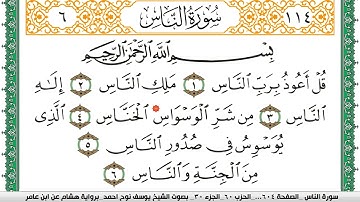 ١١٤ سُورَةُ النَّاسِ ٦
بِسْمِ اللَّهِ الرَّحْمَٰنِ الرَّحِيمِ
قُلْ أَعُوذُ بِرَبِّ النَّاسِ ١ مَلِكِ النَّاسِ ٢ إِلَٰهِ
النَّاسِ ٣ مِن شَرِّ الْوَسْوَاسِ الْخَنَّاسِ ٤ الَّذِي
يُوَسْوِسُ فِي صُدُورِ النَّاسِ ٥
مِنَ الْجِنَّةِ وَالنَّاسِ ٦
سورة الناس _الصفحة ٦٠٤ _ الحزب ٦٠ _الجزء ٣٠ _ بصوت الشيخ يوسف نوح احمد_ برواية هشام عن ابن عامر